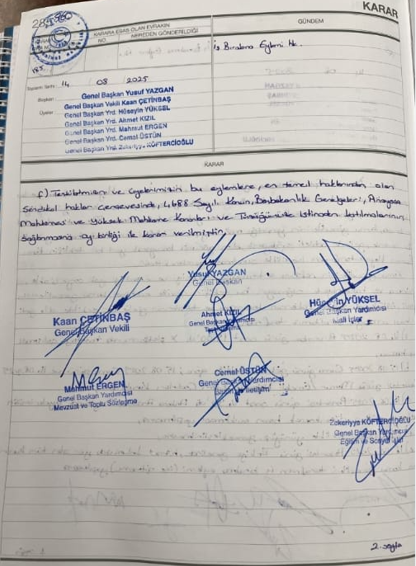 KARAR
KARARA ESAS OLAN EVRAKIN
NO.
NEREDEN GÖNDERİLDİĞİ
GÜNDEM
İş Bırakma Eylemi Hk.
Toplantı Tarihi 14 / 08 / 2025
Başkan Genel Başkan Yusuf YAZGAN
Üyeler Genel Başkan Vekili Kaan ÇETİNBAŞ
Genel Başkan Yrd. Hüseyin YÜKSEL
Genel Başkan Yrd. Ahmet KIZIL
Genel Başkan Yrd. Mahmut ERGEN
Genel Başkan Yrd. Cemal ÜSTÜN
Genel Başkan Yrd. Zekeriyye KÖFTERCİOĞLU
KARAR
Teşkilatımızın ve üyelerimizin bu eylemlere, en temel haklarından olan
Sendikal hakları çerçevesinde, 4688 Sayılı Kanun, Başbakanlık Genelgeleri, Anayasa
Mahkemesi ve Yüksek Mahkeme Kararları ve Tüzüğümüze istinaden katılmalarının
Sağlanmasına oy birliği ile karar verilmiştir.
Yusuf YAZGAN
Genel Başkan
Kaan ÇETİNBAŞ
Genel Başkan Vekili
Ahmet KIZIL
Genel Başkan Yardımcısı
Hüseyin YÜKSEL
Genel Başkan Yardımcısı
Mali İşler
Mahmut ERGEN
Genel Başkan Yardımcısı
Mevzuat ve Toplu Sözleşme
Cemal ÜSTÜN
Genel Başkan Yardımcısı
Zekeriyye KÖFTERCİOĞLU
Genel Başkan Yardımcısı
Eğitim ve Sosyal İşler
2. sayfa